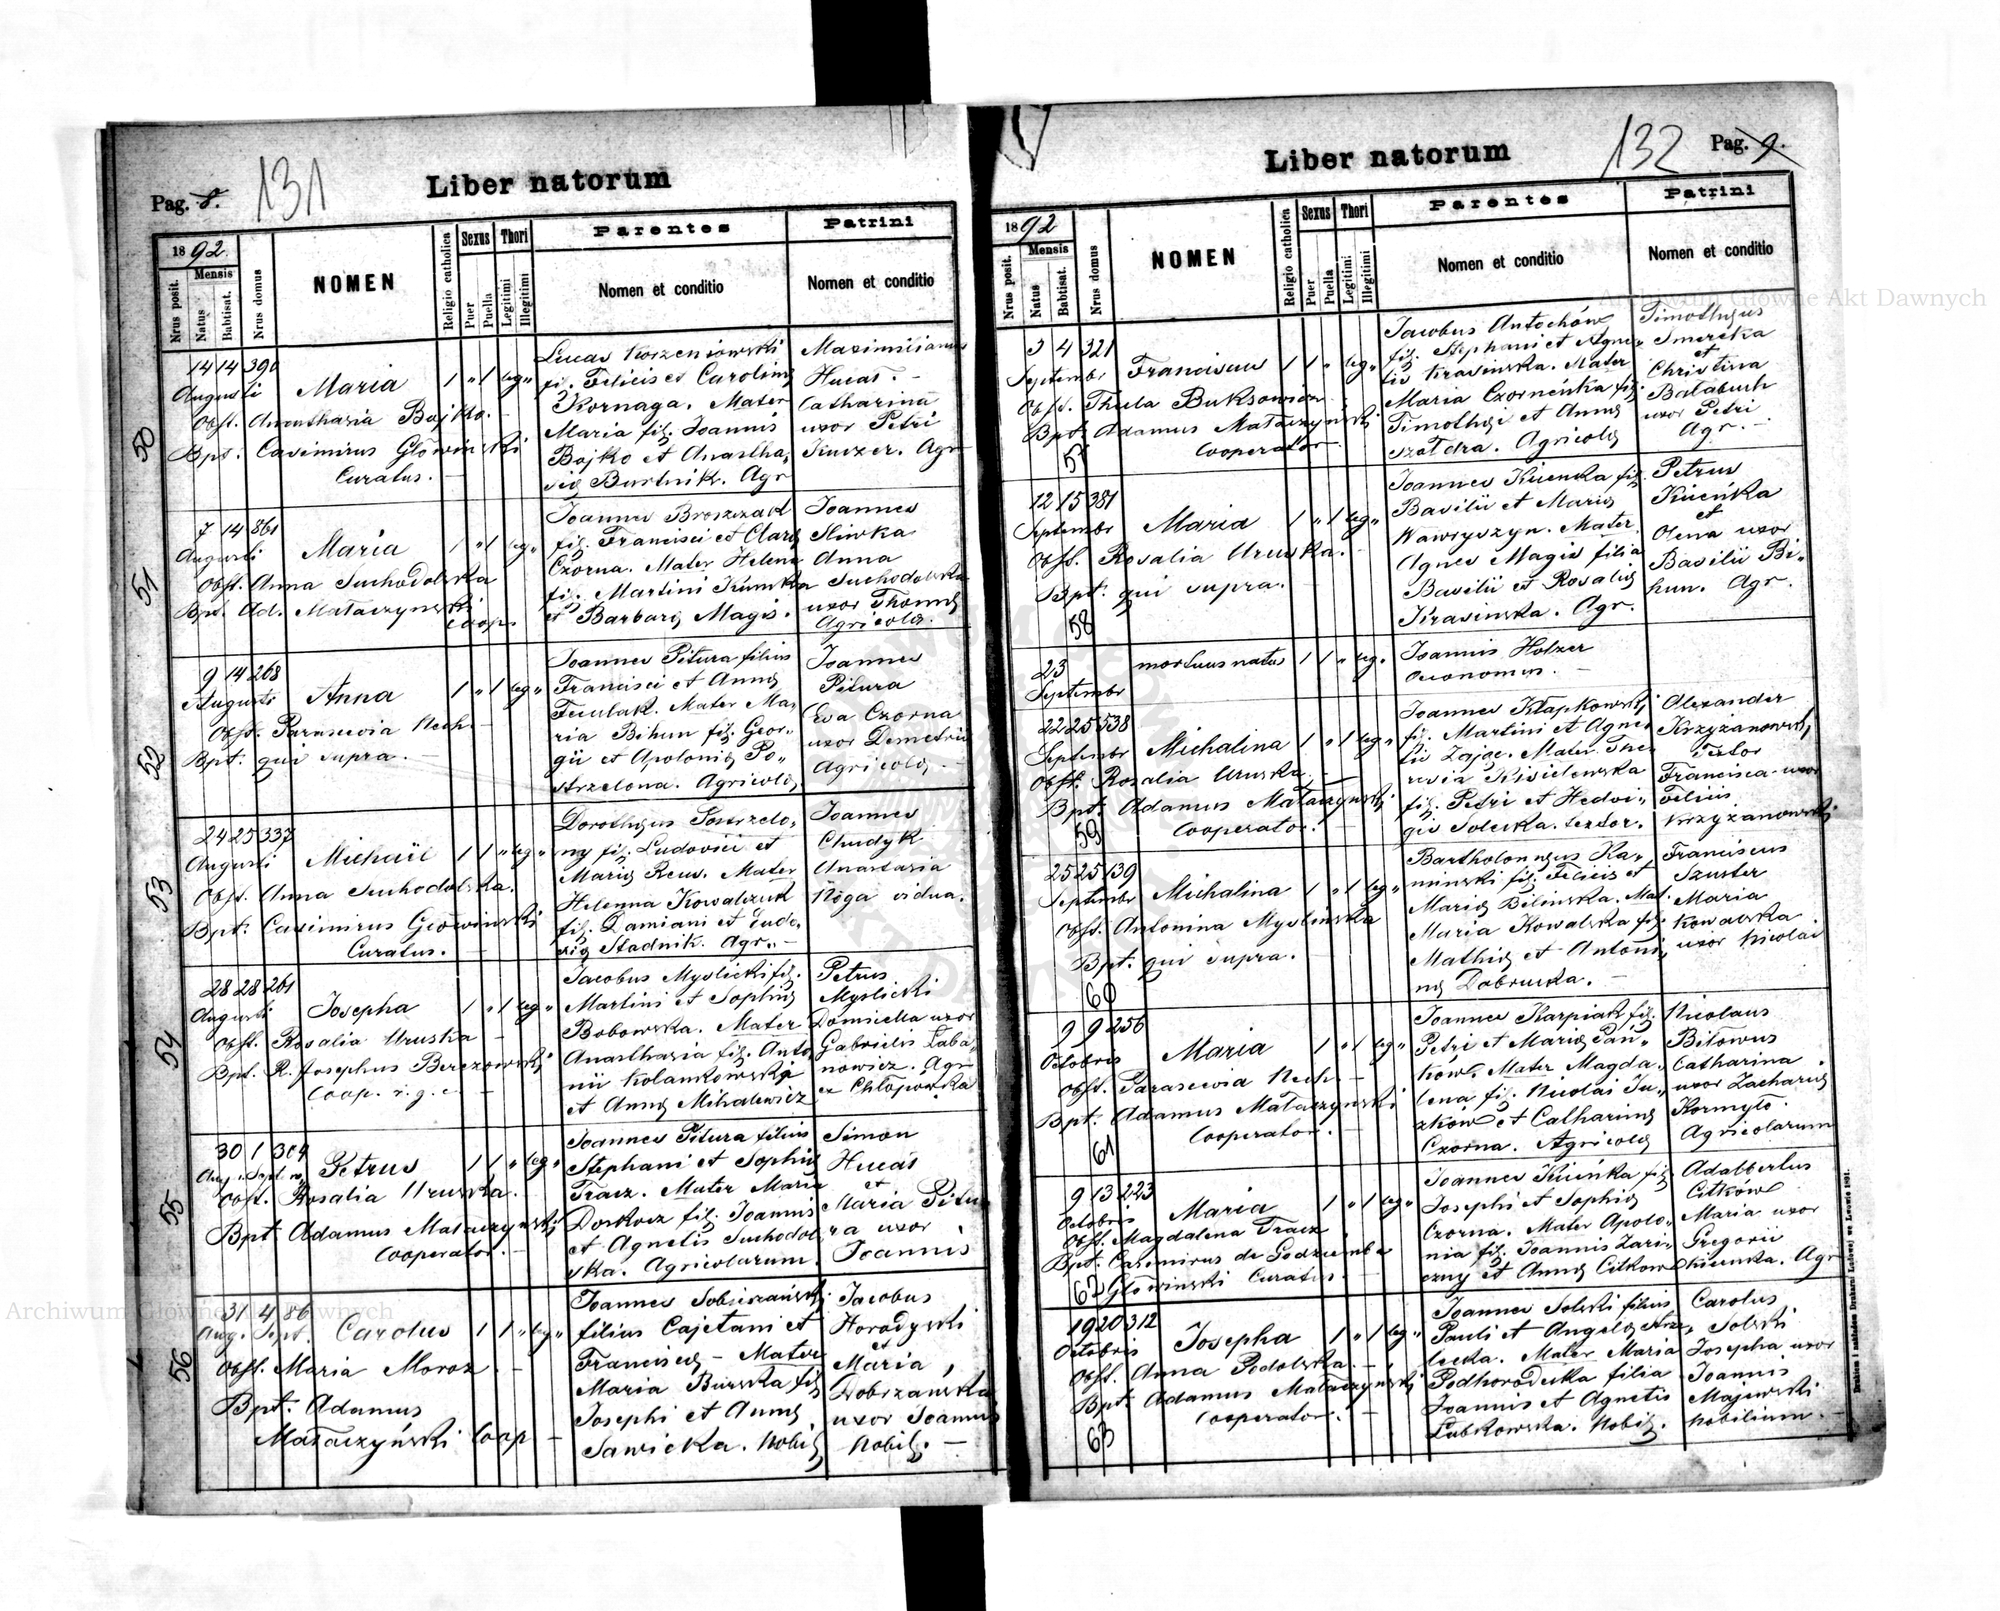 131
Pag. 8.
Liber natorum
1892.
Mensis
Nrus posit.
Natus
Babtisat.
Nrus domus
NOMEN
Religio catholica
Sexus
Puer
Puella
Thori
Legitimi
Illegitimi
Parentes
Nomen et conditio
Patrini
Nomen et conditio
50
14 14 390
Augusti Maria 1 " 1 leg "
Obst. Anasthasia Bojko.
Bpt. Casimirus Głowiński
Curatus.
Lucas Korzeniowski
fil. Felicis et Carolinę
Kornaga. Mater
Maria fil. Joannis
Bojko et Anastha,
się Burtnik. Agr
Maximilianus
Hucas. -
Catharina
uxor Petri
Kuczer. Agr
51
7 14 861
Augusti Maria 1 " 1 leg "
Obst. Anna Suchodolska
Bpt. Ad. Mataczynski
Coop.
Joannes Broszczak
fil. Francisci et Clarę
Czorna. Mater Helena
fil. Martini Kumka
et Barbarę Magis.
Joannes
Sliwka
Anna
Suchodolska
uxor Thomę
Agricolę.
52
9 14 268
Augusti Anna 1 " 1 leg "
Obst. Parascevia Nech
Bpt. qui supra.
Joannes Pitura filius
Francisci et Annę
Feculak. Mater Ma,
ria Bihun fil. Geor,,
gii et Apolonię Po,,
strzelona. Agricolę.
Joannes
Pitura
Eva Czorna
uxor Demetrii
Agricolę. -
53
24 25 337
Augusti Michael 1 1 " leg "
Obst. Anna Suchodolska.
Bpt. Casimirus Głowiński
Curatus.
Dorothęus Postrzelo,
ny fil. Ludovici et
Marię Reus. Mater
Helenna Kowalczuk
fil. Damiani et Eudo,
xię Stadnik. Agr.. -
Joannes
Chudyk
Anastasia
Noga vidua.
54
28 28 261
Augusti Josepha 1 " 1 leg "
Obst. Rosalia Uruska
Bpt. R. Josephus Berezowski
Coop. r. g. c.
Jacobus Myslicki fil.
Martini et Sophię
Bobowska. Mater
Anasthasia fil. Anto
nii Kolankowski
et Annę Mihalewicz
Petrus
Myslicki
Domicella uxor
Gabrielis Łaba,,
nowicz. Agr
ex Chłopowka
55
30 1 304
Aug. Sept. Petrus 1 1 " leg "
Obst. Rosalia Uruska.
Bpt Adamus Mataczynski
Cooperator.
Joannes Pitura filius
Stephani et Sophię
Tracz. Mater Maria
Doskocz fil. Joannis
et Agnetis Suchodol,
ska. Agricolarum.
Simon
Hucas
et
Maria Pitu
ra uxor
Joannis
56
31 4 86
Aug. Sept. Carolus 1 1 " leg "
Obst. Maria Moroz -
Bpt. Adamus
Mataczyński Coop -
Joannes Sobiszański
filius Cajetani et
Franciscę - Mater
Maria Burska fil
Josephi et Annę
Sawicka. Nobilę
Jacobus
Horodyski
et
Maria
Dobrzańska
uxor Joannis
Nobilę. -
132
Pag. 9.
Liber natorum
1892
Mensis
Nrus posit.
Natus
Babtisat.
Nrus domus
NOMEN
Religio catholica
Sexus
Puer
Puella
Thori
Legitimi
Illegitimi
Parentes
Nomen et conditio
Patrini
Nomen et conditio
3 4 321
Septembr Franciscus 1 1 " leg "
Obst. Thecla Buksowicz
Bpt. Adamus Mataczyński
Cooperator.
57
Jacobus Antochów
fil. Stephani et Agne,,
tis Krasinska. Mater
Maria Czorneńka fil.
Timothęi et Annę
Szoldra. Agricolę
Timothęus
Smereka
et
Christina
Balabuch
uxor Petri
Agr. -
12 15 381
Septembr Maria 1 " 1 leg "
Obst. Rosalia Uruska.
Bpt. qui supra.
58
Joannes Kucenka fil.
Basilii et Marię
Wawryszyn. Mater
Agnes Magis filia
Basilii et Rosalię
Krasinska. Agr.
Petrus
Kuceńka
et
Olena uxor
Basilii Bi,,
hun. Agr.
23
Septembr
mortuus natus 1 1 " leg "
Joannis Holzer
Oeconomus. -
22 25 538
Septembr Michalina 1 " 1 leg "
Obst. Rosalia Uruska
Bpt. Adamus Mataczyński
Cooperator.
59
Joannes Kłapkowski
fil. Martini et Agne
tis Zając. Mater The
resia Kisielewska
fil. Petri et Hedvi,,
gis Solecka. textor.
Alexander
Krzyżanowski
Textor
Francisca uxor
Felicis
Krzyżanowski
25 25 139
Septembr Michalina 1 " 1 leg "
Obst. Antonina Myslinska
Bpt. qui supra.
60
Bartholomęus Ka,,
minski fil. Felicis et
Marię Bilinska. Mat.
Maria Kowalska fil.
Mathię et Antoni,,
nę Dobrucka. -
Franciscus
Szuster
Maria
Kowalska
uxor Nicolai
9 9 256
Octobris Maria 1 " 1 leg "
Obst. Parascevia Nech
Bpt. Adamus Mataczynski
Cooperator.
61
Joannes Karpiak fil.
Petri et Marię Pań,,
ków. Mater Magda,
lena fil. Nicolai Ju,,
zków et Catharinę
Czorna. Agricolę
Nicolaus
Bilowus
Catharina
uxor Zacharię
Kormyło
Agricolarum
9 13 223
Octobris Maria 1 " 1 leg "
Obst. Magdalena Tracz
Bpt. Casimirus de Godziemba
Głowinski Curatus.
62
Joannes Kuceńka fil
Josephi et Sophię
Czorna. Mater Apolo,,
nia fil. Joannis Zari,,
czny et Annę Citków
Adalbertus
Citków
Maria uxor
Gregorii
Kucenka. Agr
19 20 312
Octobris Josepha 1 " 1 leg "
Obst. Anna Podolska. -
Bpt. Adamus Mataczyński
Cooperator.
63
Joannes Solski filius
Pauli et Angelę Strze,
lecka. Mater Maria
Podhorodecka filia
Joannis et Agnetis
Lubkowska. Nobilę.
Carolus
Solski
Josepha uxor
Joannis
Majewski
Nobilium. -
Drukiem i nakładem Drukarni Ludowej we Lwowie 1891.
Archiwum Główne Akt Dawnych
Archiwum Główne Akt Dawnych